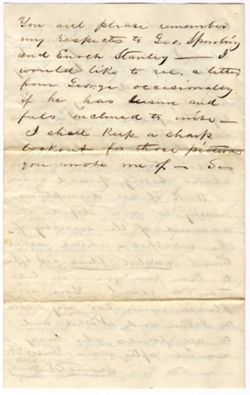 You will please remember
my respects to Geo. Spensley
and Enoch Stanley — I
would like to rec. a letter
from George occasionally
if he has leisure and
feels inclined to write —
I shall keep a sharp
lookout for those pictures
you wrote me of —